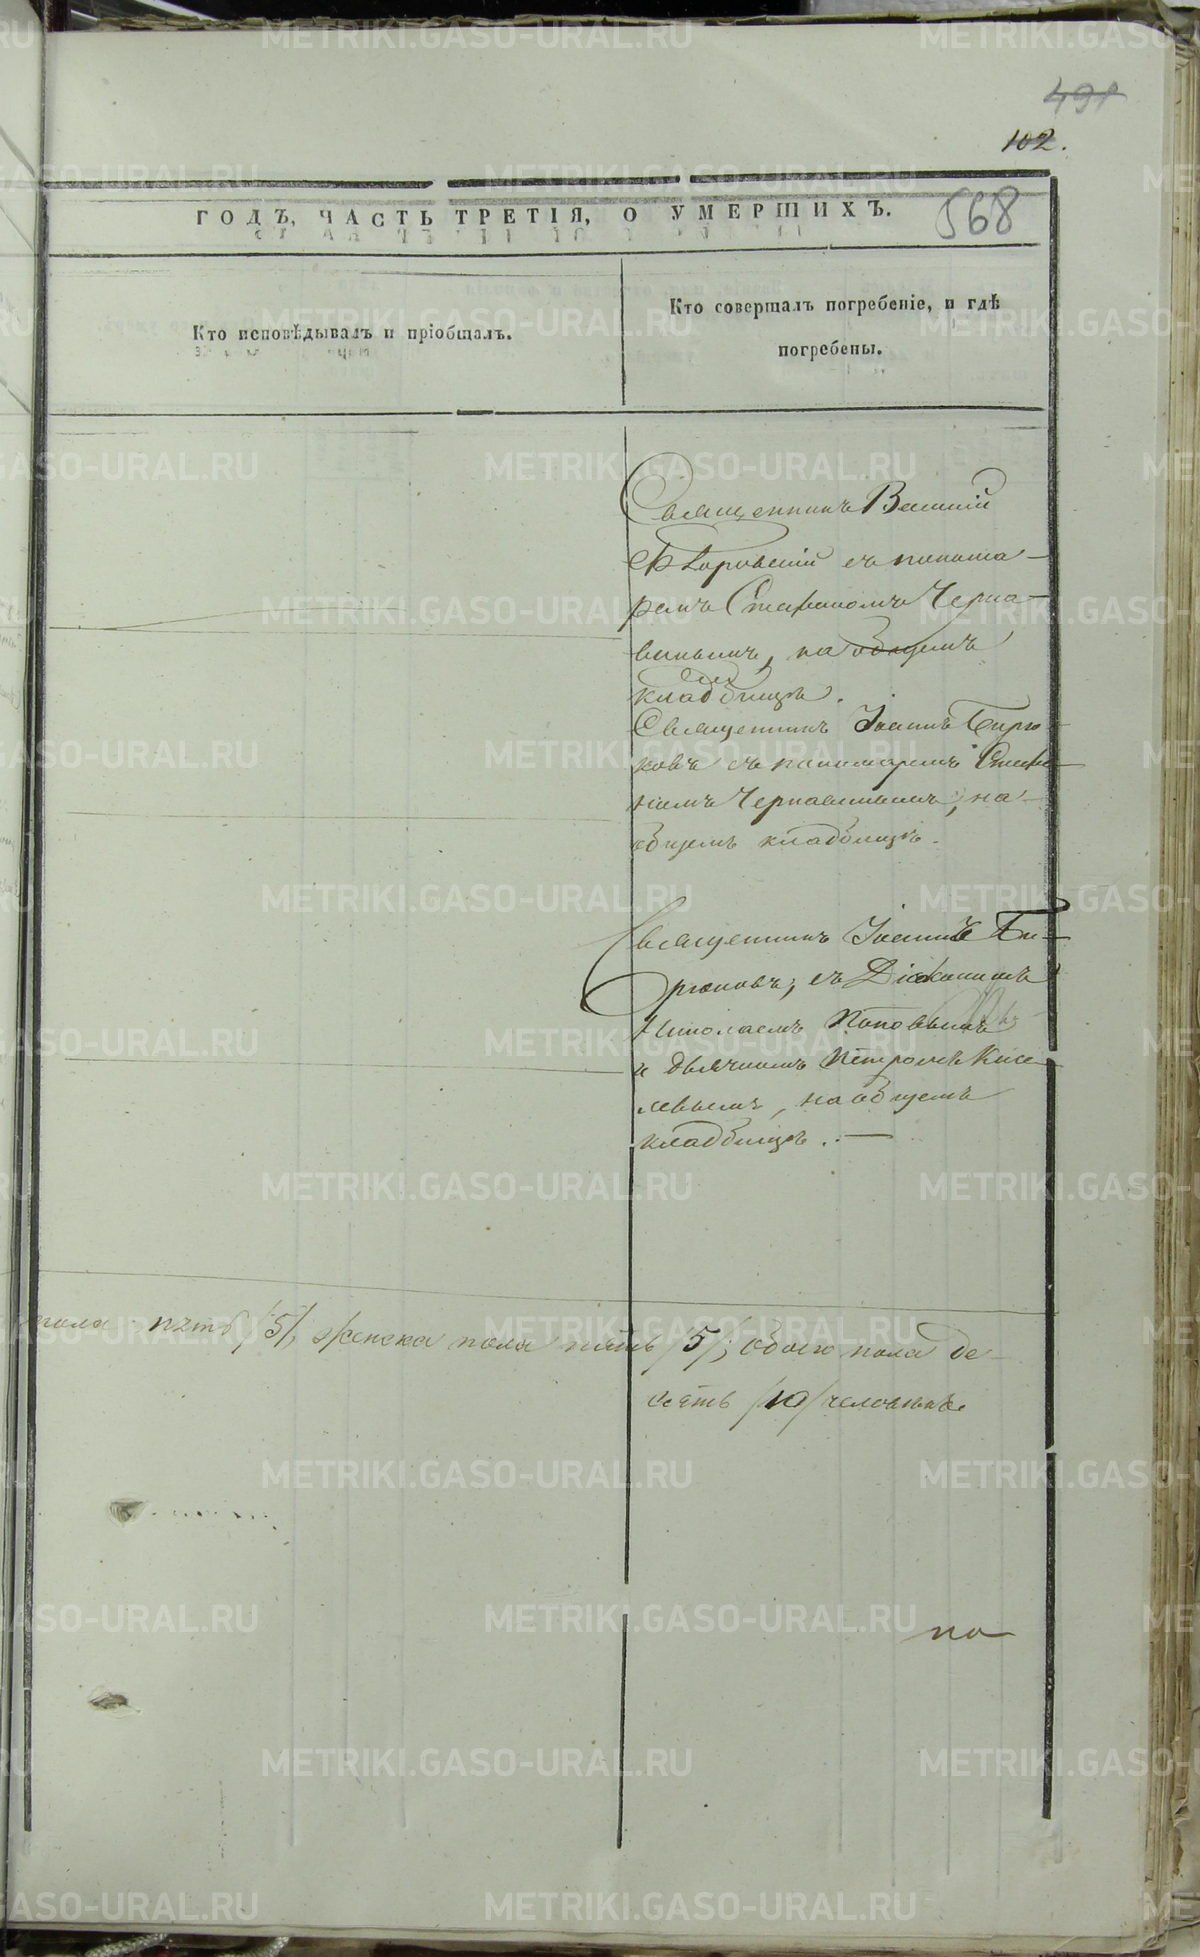 491
102.
ГОДЪ, ЧАСТЬ ТРЕТІЯ, О УМЕРШИХЪ.
568
Кто исповѣдывалъ и пріобщалъ.
Кто совершалъ погребеніе, и гдѣ
погребены.
Священникъ Василій
съ понома-
ремъ Стефаномъ Черна-
винымъ, на общемъ
кладбищѣ.
Священникъ Іоаннъ Бирю-
ковъ съ пономаремъ Стефа-
номъ Чернавинымъ, на
общемъ кладбищѣ.
Священникъ Іоаннъ Би-
рюковъ, съ Діакономъ
Николаемъ Поповымъ
и дьячкомъ Петромъ Кисе-
левымъ, на общемъ
кладбищѣ. —
пола пять /5/, женска пола пять /5/; обоего пола де-
сять /10/ человѣкъ.
по
METRIKI.GASO-URAL.RU